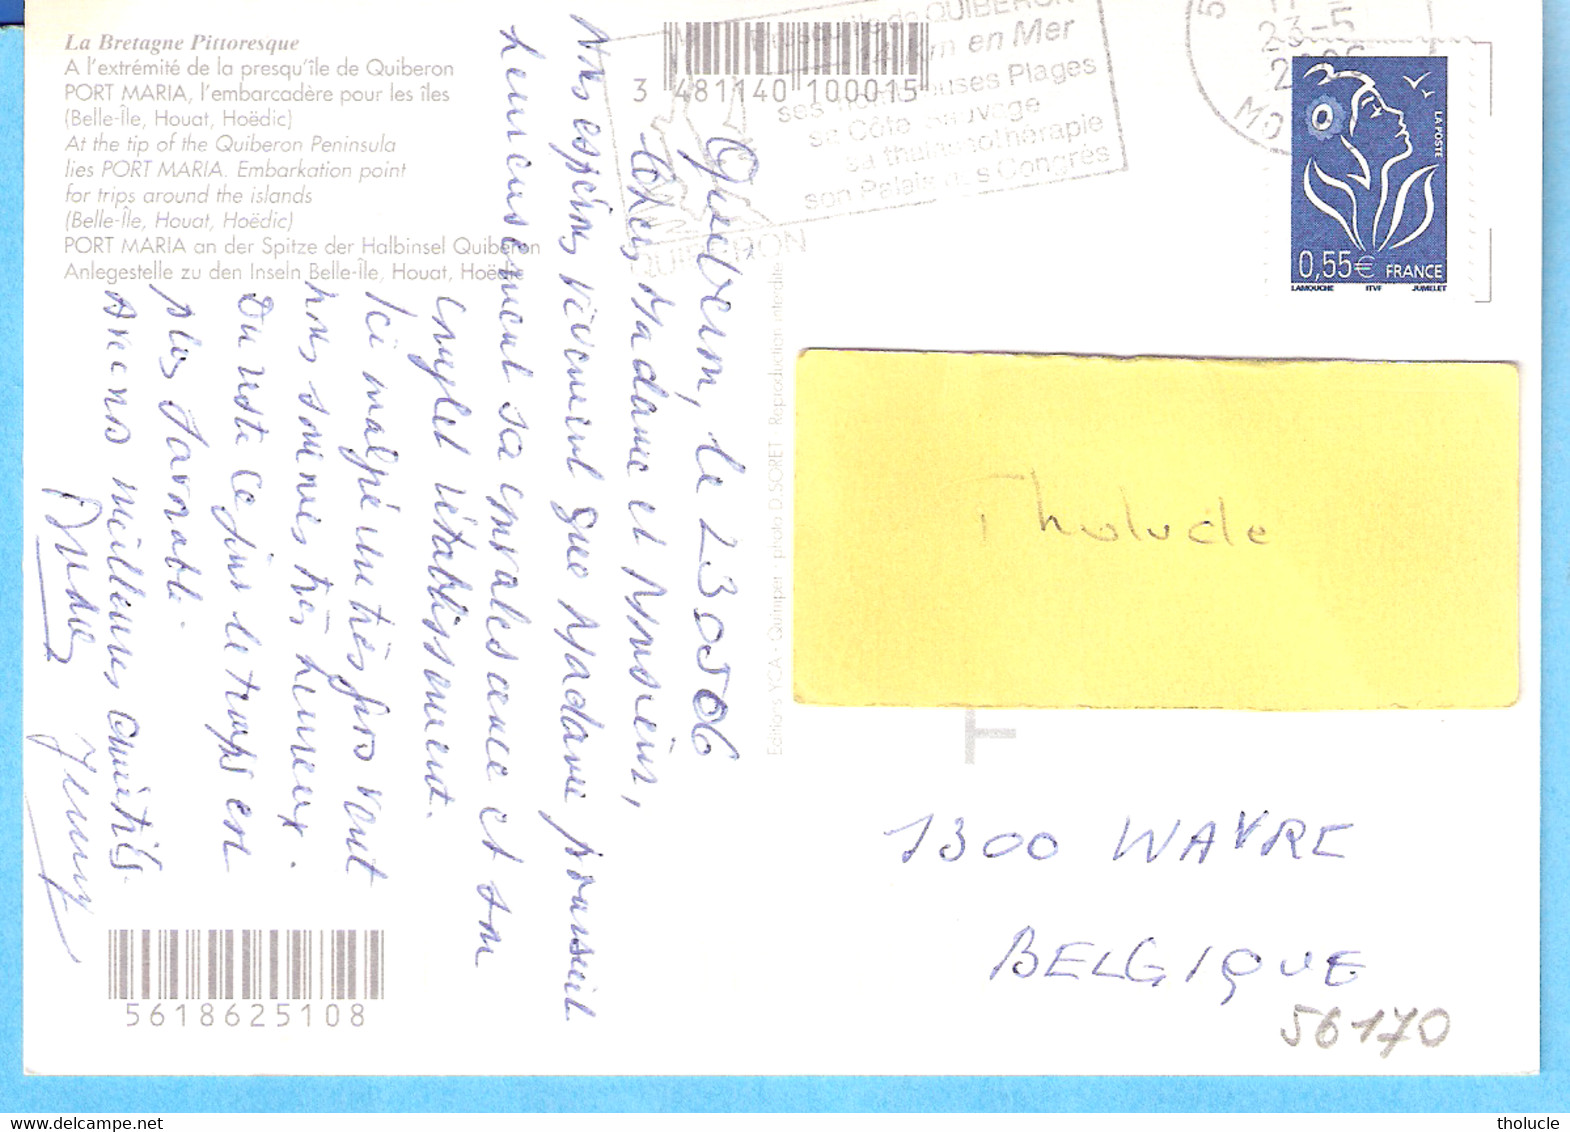 La Bretagne Pittoresque
A l'extrémité de la presqu'île de Quiberon
PORT MARIA, l'embarcadère pour les îles
(Belle-Île, Houat, Hoëdic)
At the tip of the Quiberon Peninsula
lies PORT MARIA. Embarkation point
for trips around the islands
(Belle-Île, Houat, Hoëdic)
PORT MARIA an der Spitze der Halbinsel Quiberon
Anlegestelle zu den Inseln Belle-Île, Houat, Hoëdic
3 481140 100015
QUIBERON
en Mer
Plages
sa Côte sauvage
sa thalassothérapie
son Palais des Congrès
QUIBERON
23-5
LA POSTE
0,55€ FRANCE
LAMOUCHE ITVF JUMELET
Quiberon, le 230506
Chers Madame et Monsieur,
Nous espérons vivement que Madame poursuit
heureusement sa convalescence et son
complet rétablissement.
Ici malgré un très gros vent
nous sommes très heureux.
Du reste ce jour le temps est
plus favorable.
Avec nos meilleures amitiés.
Jenny
Editions YCA - Quimper - photo D. SORET Reproduction interdite
Tholucle
1300 WAVRE
BELGIQUE
56170
5618625108
tholucle